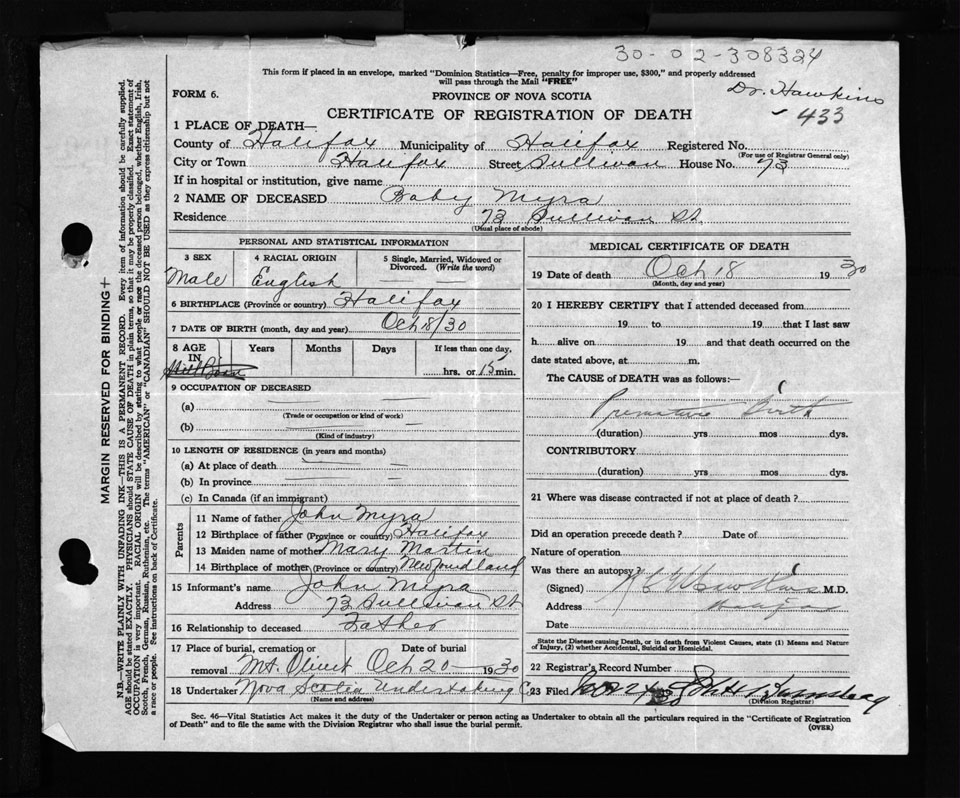 30-02-308324
This form if placed in an envelope, marked "Dominion Statistics—Free, penalty for improper use, $300," and properly addressed
will pass through the Mail "FREE"
Dr. Hawkins
FORM 6.
PROVINCE OF NOVA SCOTIA
433
CERTIFICATE OF REGISTRATION OF DEATH
1 PLACE OF DEATH—
County of Halifax Municipality of Halifax Registered No.
(For use of Registrar General only)
City or Town Halifax Street Sullivan House No. 73
If in hospital or institution, give name
2 NAME OF DECEASED Baby Myra
Residence 73 Sullivan St.
(Usual place of abode)
PERSONAL AND STATISTICAL INFORMATION
3 SEX 4 RACIAL ORIGIN 5 Single, Married, Widowed or
Divorced. (Write the word)
Male English
6 BIRTHPLACE (Province or country) Halifax
7 DATE OF BIRTH (month, day and year) Oct 18/30
8 AGE IN Years Months Days If less than one day,
Still Born hrs. or 15 min.
9 OCCUPATION OF DECEASED
(a)
(Trade or occupation or kind of work)
(b)
(Kind of industry)
10 LENGTH OF RESIDENCE (in years and months)
(a) At place of death
(b) In province
(c) In Canada (if an immigrant)
Parents
11 Name of father John Myra
12 Birthplace of father (Province or country) Halifax
13 Maiden name of mother Mary Martin
14 Birthplace of mother (Province or country) Newfoundland
15 Informant's name John Myra
Address 73 Sullivan St
16 Relationship to deceased Father
17 Place of burial, cremation or removal Mt. Olivet Date of burial Oct 20 1930
18 Undertaker Nova Scotia Undertaking Co
(Name and address)
MEDICAL CERTIFICATE OF DEATH
19 Date of death Oct 18 1930
(Month, day and year)
20 I HEREBY CERTIFY that I attended deceased from
19 to 19 that I last saw
h alive on 19 and that death occurred on the
date stated above, at m.
The CAUSE of DEATH was as follows:—
Premature Birth
(duration) yrs mos dys.
CONTRIBUTORY
(duration) yrs mos dys.
21 Where was disease contracted if not at place of death?
Did an operation precede death? Date of
Nature of operation
Was there an autopsy?
(Signed) Hawkins M.D.
Address Halifax
Date
State the Disease causing Death, or in death from Violent Causes, state (1) Means and Nature
of Injury, (2) whether Accidental, Suicidal or Homicidal.
22 Registrar's Record Number
23 Filed
(Division Registrar)
Sec. 46—Vital Statistics Act makes it the duty of the Undertaker or person acting as Undertaker to obtain all the particulars required in the "Certificate of Registration
of Death" and to file the same with the Division Registrar who shall issue the burial permit.
(OVER)
MARGIN RESERVED FOR BINDING
N.B.—WRITE PLAINLY WITH UNFADING INK—THIS IS A PERMANENT RECORD. Every item of information should be carefully supplied.
AGE should be stated EXACTLY. PHYSICIANS should STATE CAUSE OF DEATH in plain terms, so that it may be properly classified. Exact statement of
OCCUPATION is very important. RACIAL ORIGIN will be described by stating to what people or race the deceased person belonged, whether English, Irish,
Scotch, French, German, Russian, Ruthenian, etc. The terms "AMERICAN" or "CANADIAN" SHOULD NOT BE USED as they express citizenship but not
a race or people. See instructions on back of Certificate.